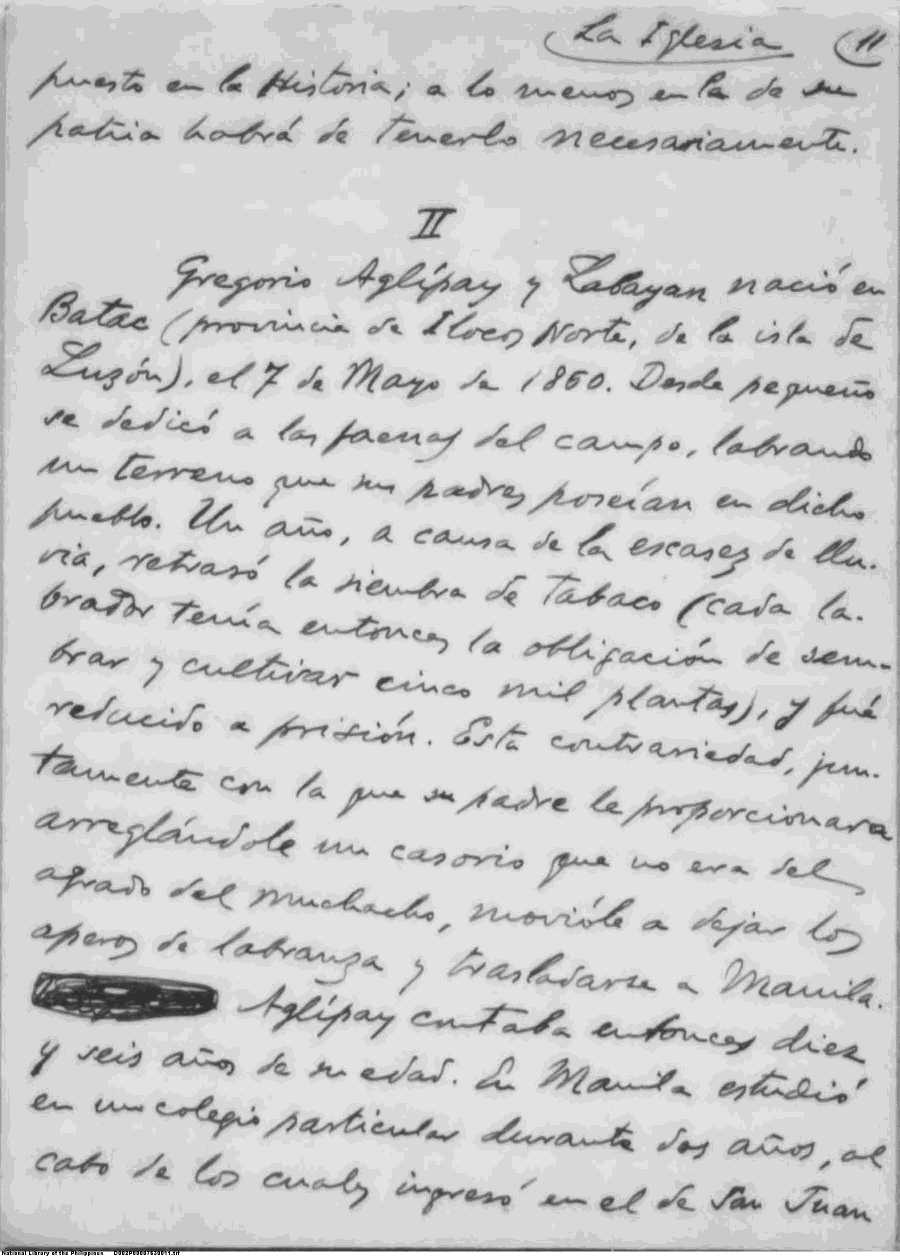 La Iglesia 11
puesto en la Historia; a lo menos en la de su
patria habrá de tenerlo necesariamente.
II
Gregorio Aglípay y Labayan nació en
Batac (provincia de Ilocos Norte, de la isla de
Luzón), el 7 de Mayo de 1860. Desde pequeño
se dedicó a las faenas del campo, labrando
un terreno que sus padres poseían en dicho
pueblo. Un año, a causa de la escasez de llu-
via, retrasó la siembra de tabaco (cada la-
brador tenía entonces la obligación de sem-
brar y cultivar cinco mil plantas), y fué
reducido a prisión. Esta contrariedad, jun-
tamente con la que su padre le proporcionara
arreglándole un casorio que no era del
agrado del muchacho, movióle a dejar los
aperos de labranza y trasladarse a Manila.
Aglípay contaba entonces diez
y seis años de su edad. En Manila estudió
en un colegio particular durante dos años, al
cabo de los cuales ingresó en el de San Juan
National Library of the Philippines D002P00007630011.tif